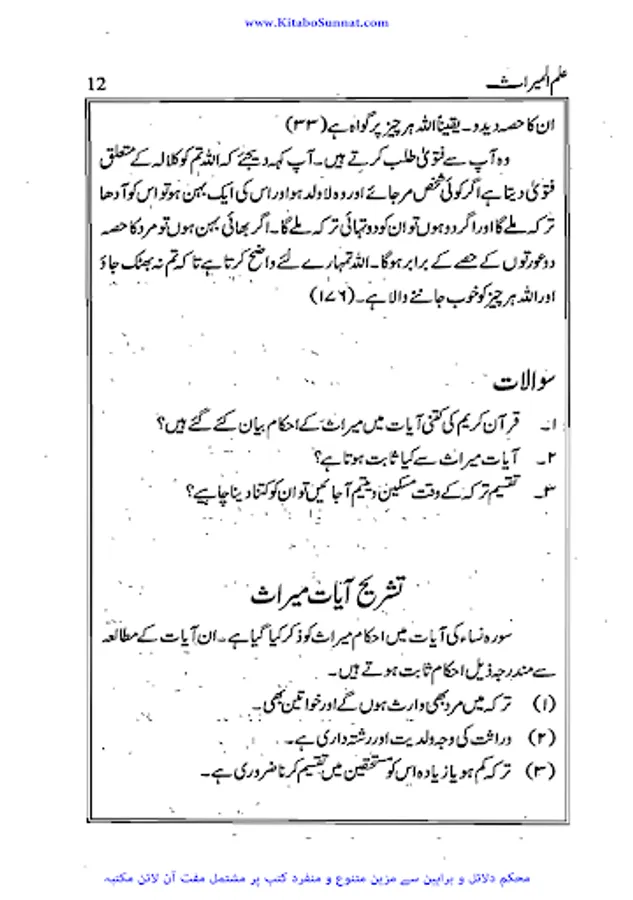 www.KitaboSunnat.com
علم المیراث
12
ان کا حصہ دیدو۔ یقیناً اللہ ہر چیز پر گواہ ہے (۳۳)
وہ آپ سے فتویٰ طلب کرتے ہیں۔ آپ کہہ دیجئے کہ اللہ تم کو کلالہ کے متعلق
فتویٰ دیتا ہے اگر کوئی شخص مر جائے اور وہ لا ولد ہو اور اس کی ایک بہن ہو تو اس کو آدھا
ترکہ ملے گا اور اگر دو ہوں تو ان کو دو تہائی ترکہ ملے گا۔ اگر بھائی بہن ہوں تو مرد کا حصہ
دو عورتوں کے حصے کے برابر ہوگا۔ اللہ تمہارے لئے واضح کرتا ہے تا کہ تم نہ بھٹک جاؤ
اور اللہ ہر چیز کو خوب جاننے والا ہے۔ (۱۷۶)
سوالات
۱۔ قرآن کریم کی کتنی آیات میں میراث کے احکام بیان کئے گئے ہیں؟
۲۔ آیات میراث سے کیا ثابت ہوتا ہے؟
۳۔ تقسیم ترکہ کے وقت مسکین و یتیم آجائیں تو ان کو کتنا دینا چاہیے؟
تشریح آیات میراث
سورہ نساء کی آیات میں احکام میراث کو ذکر کیا گیا ہے۔ ان آیات کے مطالعہ
سے مندرجہ ذیل احکام ثابت ہوتے ہیں۔
(۱) ترکہ میں مرد بھی وارث ہوں گے اور خواتین بھی۔
(۲) وراثت کی وجہ ولدیت اور رشتہ داری ہے۔
(۳) ترکہ کم ہو یا زیادہ اس کو مستحقین میں تقسیم کرنا ضروری ہے۔
محکم دلائل و براہین سے مزین متنوع و منفرد کتب پر مشتمل مفت آن لائن مکتبہ